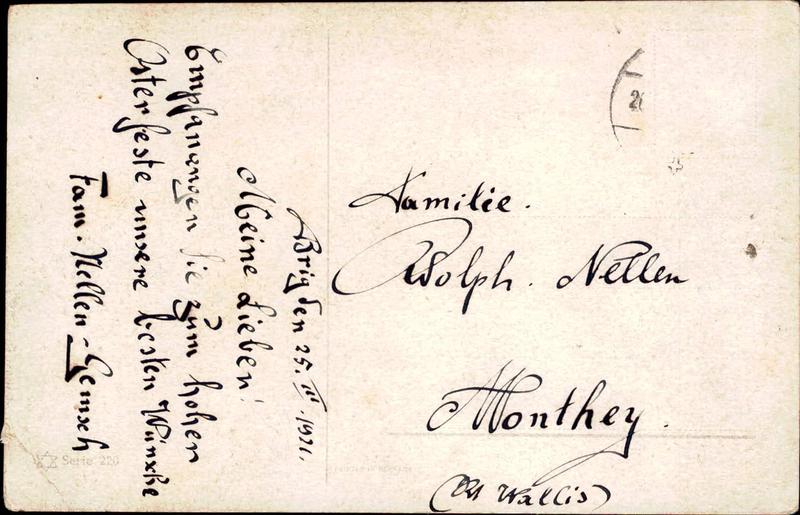 Brig den 25. III. 1921.
Meine Lieben!
Empfanangen Sie zum hohen
Osterfeste unsere besten Wünsche
Fam. Nellen-Gemsch
Familie.
Adolph. Nellen
Monthey.
(Wallis)
Serie 220